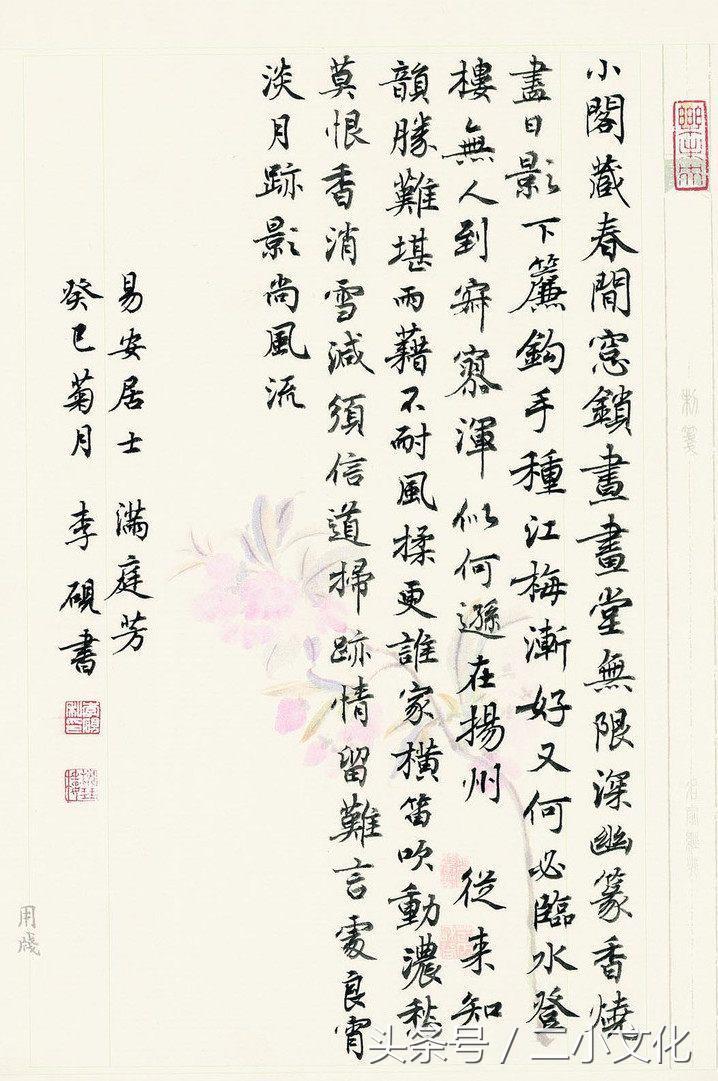 小閣藏春閒窓鎖晝畫堂無限深幽篆香燒
盡日影下簾鈎手種江梅漸好又何必臨水登
樓無人到寂寥渾似何遜在揚州 從来知
韻勝難堪雨藉不耐風揉更誰家橫笛吹動濃愁
莫恨香消雪減須信道掃跡情留難言處良宵
淡月踈影尚風流
易安居士 滿庭芳
癸巳菊月 李硯書
用牋
头条号 / 二小文化